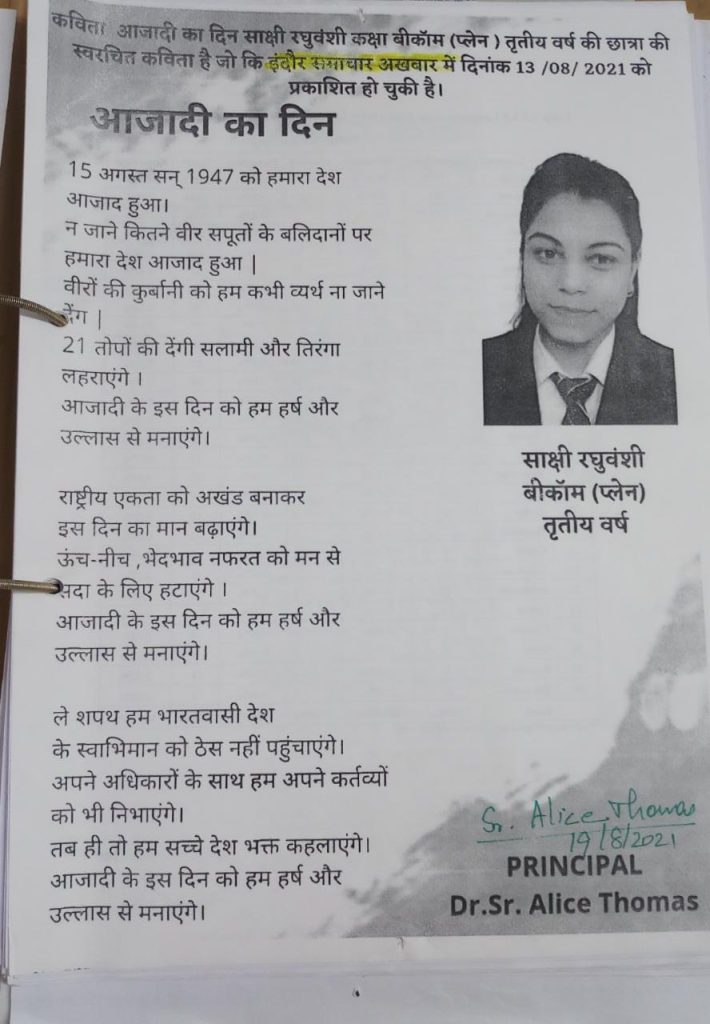 कविता आजादी का दिन साक्षी रघुवंशी कक्षा बीकॉम (प्लेन ) तृतीय वर्ष की छात्रा की
स्वरचित कविता है जो कि इंदौर समाचार अखबार में दिनांक 13 /08/ 2021 को
प्रकाशित हो चुकी है।
आजादी का दिन
15 अगस्त सन् 1947 को हमारा देश
आजाद हुआ।
न जाने कितने वीर सपूतों के बलिदानों पर
हमारा देश आजाद हुआ |
वीरों की कुर्बानी को हम कभी व्यर्थ ना जाने
देंग |
21 तोपों की देंगी सलामी और तिरंगा
लहराएंगे ।
आजादी के इस दिन को हम हर्ष और
उल्लास से मनाएंगे।
राष्ट्रीय एकता को अखंड बनाकर
इस दिन का मान बढ़ाएंगे।
ऊंच-नीच ,भेदभाव नफरत को मन से
सदा के लिए हटाएंगे ।
आजादी के इस दिन को हम हर्ष और
उल्लास से मनाएंगे।
ले शपथ हम भारतवासी देश
के स्वाभिमान को ठेस नहीं पहुंचाएंगे।
अपने अधिकारों के साथ हम अपने कर्तव्यों
को भी निभाएंगे।
तब ही तो हम सच्चे देश भक्त कहलाएंगे।
आजादी के इस दिन को हम हर्ष और
उल्लास से मनाएंगे।
साक्षी रघुवंशी
बीकॉम (प्लेन)
तृतीय वर्ष
Sr. Alice Thomas
19/8/2021
PRINCIPAL
Dr.Sr. Alice Thomas